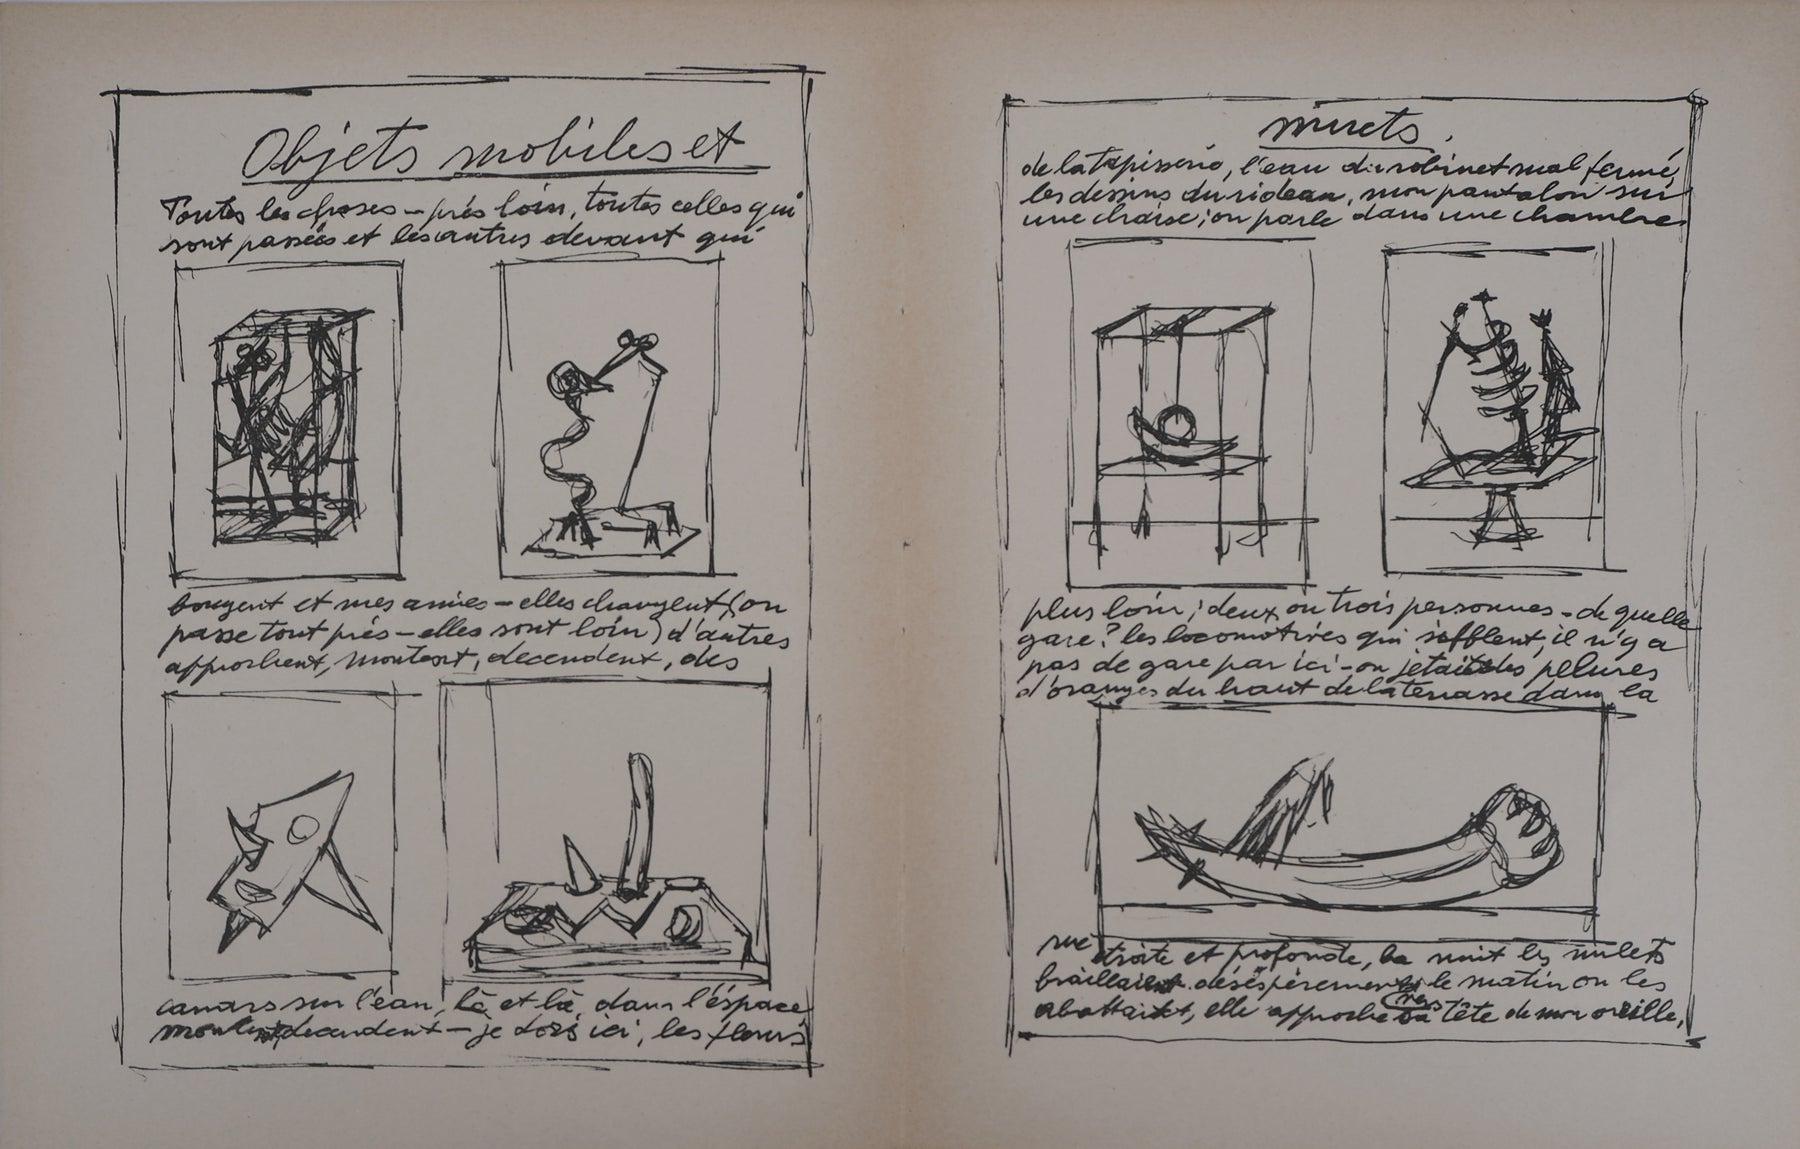 Objets mobiles et
Toutes les choses – près loin, toutes celles qui
sont passées et les autres devant qui
bougent et mes amies – elles changent (on
passe tout près – elles sont loin) d'autres
approchent, montent, decendent, des
canars sur l'eau, là et là, dans l'éspace
montent, decendent – je dors ici, les fleurs
muets.
de la tapisserie, l'eau du robinet mal fermé,
les dessins du rideau, mon pantalon sur
une chaise; on parle dans une chambre
plus loin; deux ou trois personnes – de quelle
gare? les locomotives qui sifflent, il n'y a
pas de gare par ici – on jetait des pelures
d'oranges du haut de la terrasse dans la
rue étroite et profonde, la nuit les mulets
braillaient déséspérement, le matin on les
abattait, elle approche sa tête de mon oreille,